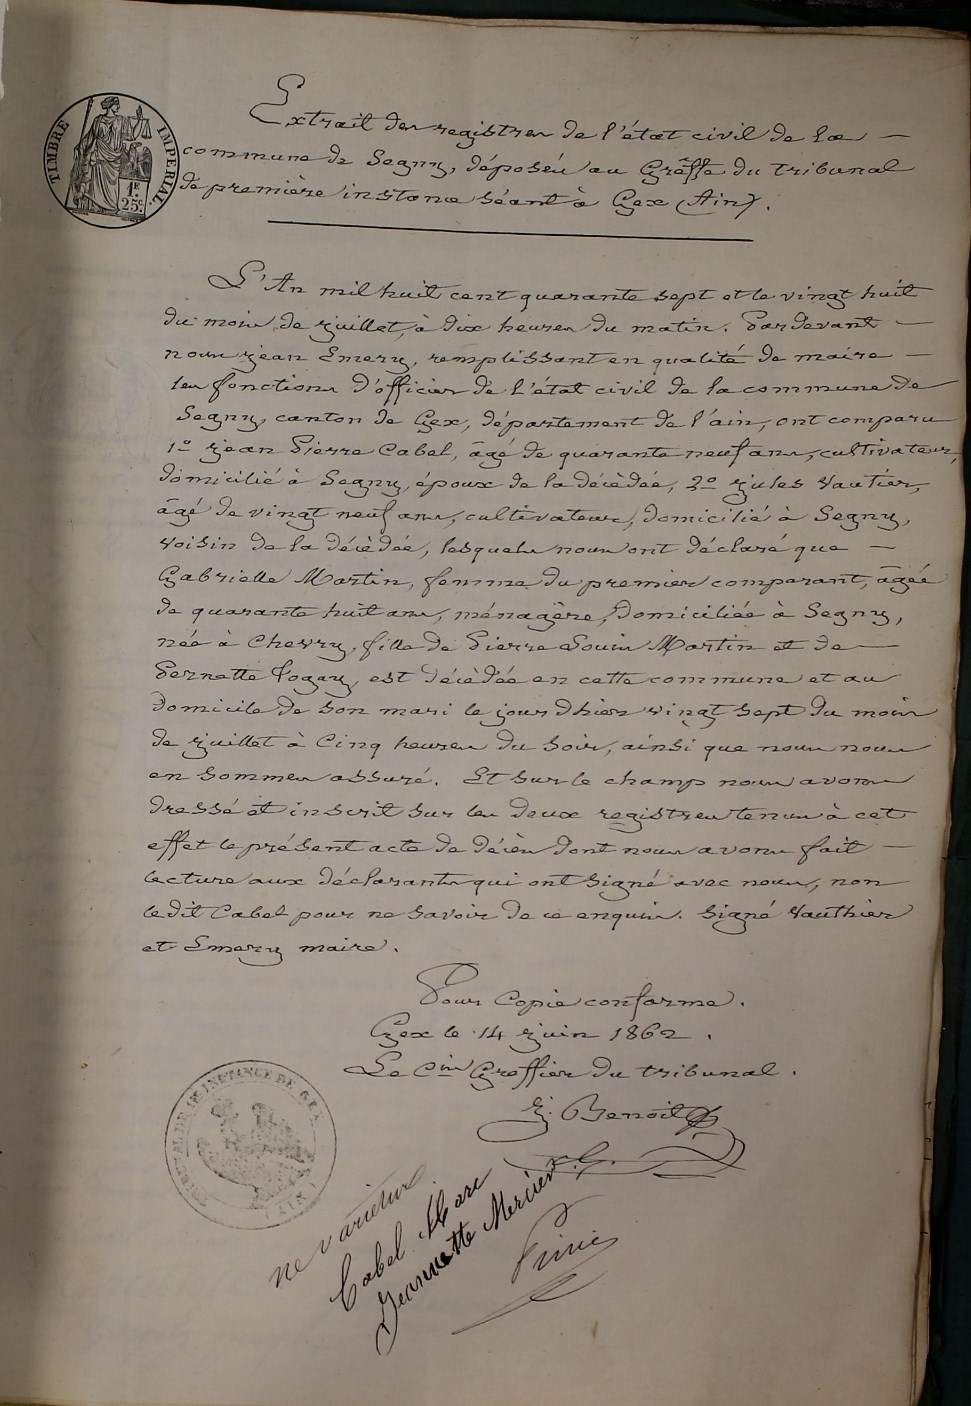 TIMBRE IMPERIAL.
1F. 25c.
Extrait des registres de l'état civil de la —
commune de Segny, déposés au Greffe du tribunal
de première instance séant à Gex (Ain).
L'An mil huit cent quarante sept et le vingt huit
du mois de juillet, à dix heures du matin. Pardevant —
nous Jean Emery, remplissant en qualité de maire —
les fonctions d'officier de l'état civil de la commune de
Segny, canton de Gex, département de l'ain, ont comparu
1º Jean Pierre Cabel, âgé de quarante neuf ans, cultivateur,
domicilié à Segny, époux de la décédée, 2º Jules Vautier,
âgé de vingt neuf ans, cultivateur, domicilié à Segny,
voisin de la décédée, lesquels nous ont déclaré que —
Gabrielle Martin, femme du premier comparant, âgée
de quarante huit ans, ménagère, domiciliée à Segny,
née à Chevry, fille de Pierre Louis Martin et de —
Pernette Fogay, est décédée en cette commune et au
domicile de son mari le jour d'hier vingt sept du mois
de juillet à Cinq heures du soir, ainsi que nous nous
en sommes assuré. Et sur le champ nous avons
dressé et inscrit sur les deux registres tenus à cet
effet le présent acte de décès dont nous avons fait —
lecture aux déclarants qui ont signé avec nous, non
ledit Cabel pour ne savoir de ce enquis. Signé Vauthier
et Emery maire.
Pour Copie conforme.
Gex le 14 Juin 1862.
Le Cis Greffier du tribunal.
J. Benoit
TRIBUNAL DE 1RE INSTANCE DE GEX
(AIN)
ne varietur
Cabel Marc
Jeannette Mercier